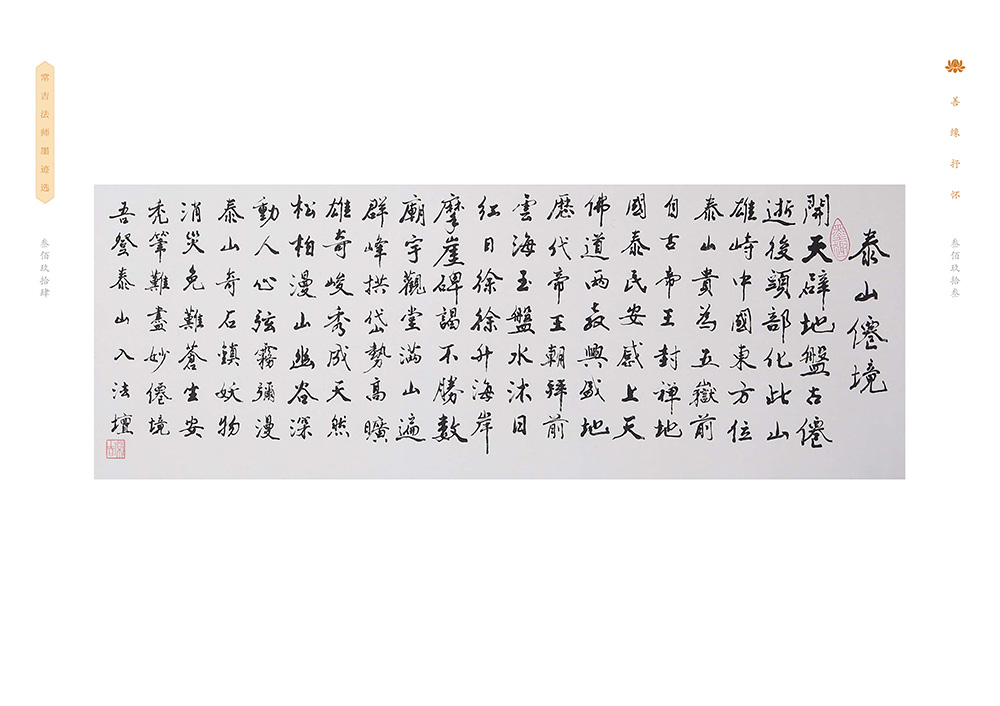 善缘抒怀
叁佰玖拾叁
泰山僊境
開天辟地盤古僊
逝後頭部化此山
雄峙中國東方位
泰山貴為五嶽前
自古帝王封禅地
國泰民安感上天
佛道两教興盛地
歷代帝王朝拜前
雲海玉盤水沐日
紅日徐徐升海岸
摩崖碑謁不勝数
廟宇觀堂满山遍
群峰拱岱勢高曠
雄奇峻秀成天然
松柏漫山幽谷深
動人心弦霧彌漫
泰山奇石鎮妖物
消災免難蒼生安
禿筆難盡妙僊境
吾登泰山入法壇
常吉法师墨迹选
叁佰玖拾肆